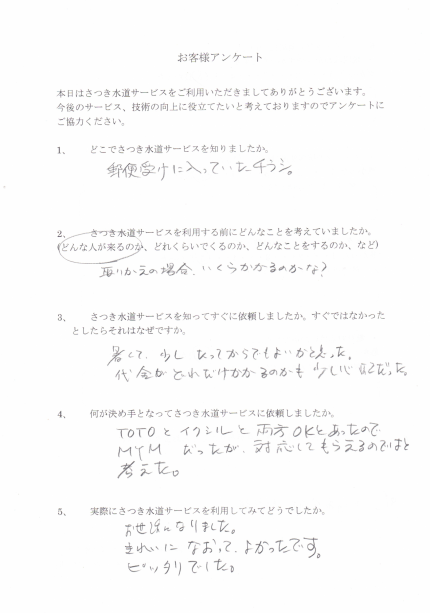 お客様アンケート
本日はさつき水道サービスをご利用いただきましてありがとうございます。
今後のサービス、技術の向上に役立てたいと考えておりますのでアンケートに
ご協力ください。
1、 どこでさつき水道サービスを知りましたか。
郵便受けに入っていたチラシ。
2、 さつき水道サービスを利用する前にどんなことを考えていましたか。
(どんな人が来るのか、どれくらいでくるのか、どんなことをするのか、など)
取りかえの場合、いくらかかるのかな?
3、 さつき水道サービスを知ってすぐに依頼しましたか。すぐではなかった
としたらそれはなぜですか。
暑くて、少したってからでもよいかと思った。
代金がどれだけかかるのかも少し心配だった。
4、 何が決め手となってさつき水道サービスに依頼しましたか。
TOTOとイナクシルと両方OKとあったので
MYMだったが、対応してもらえるのではと
考えた。
5、 実際にさつき水道サービスを利用してみてどうでしたか。
お世話になりました。
きれいになおって、よかったです。
ピッタリでした。